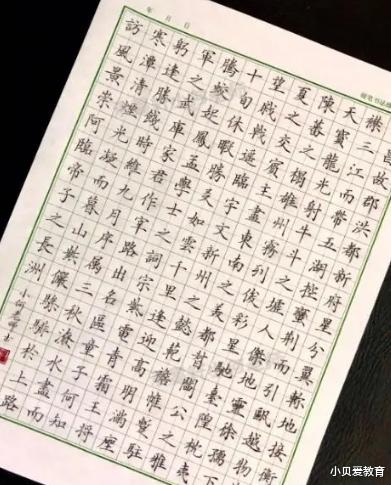 年 月 日
故郡洪都新府星分翼軫地接衡
襟三江而帶五湖控蠻荊而引甌越物
天寶龍光射牛斗之墟人傑地靈徐孺下
陳蕃之榻雄州霧列俊彩星馳臺隍枕夷
夏之交賓主盡東南之美都督閻公之雅
望棨戟遙臨宇文新州之懿範襜帷暫駐
十旬休暇勝友如雲千里逢迎高朋滿座
騰蛟起鳳孟學士之詞宗紫電青霜王將
軍之武庫家君作宰路出名區童子何知
躬逢勝餞時維九月序屬三秋潦水盡而
寒潭清煙光凝而暮山紫儼驂騑於上路
訪風景崇阿臨帝子之長洲
小贝爱教育